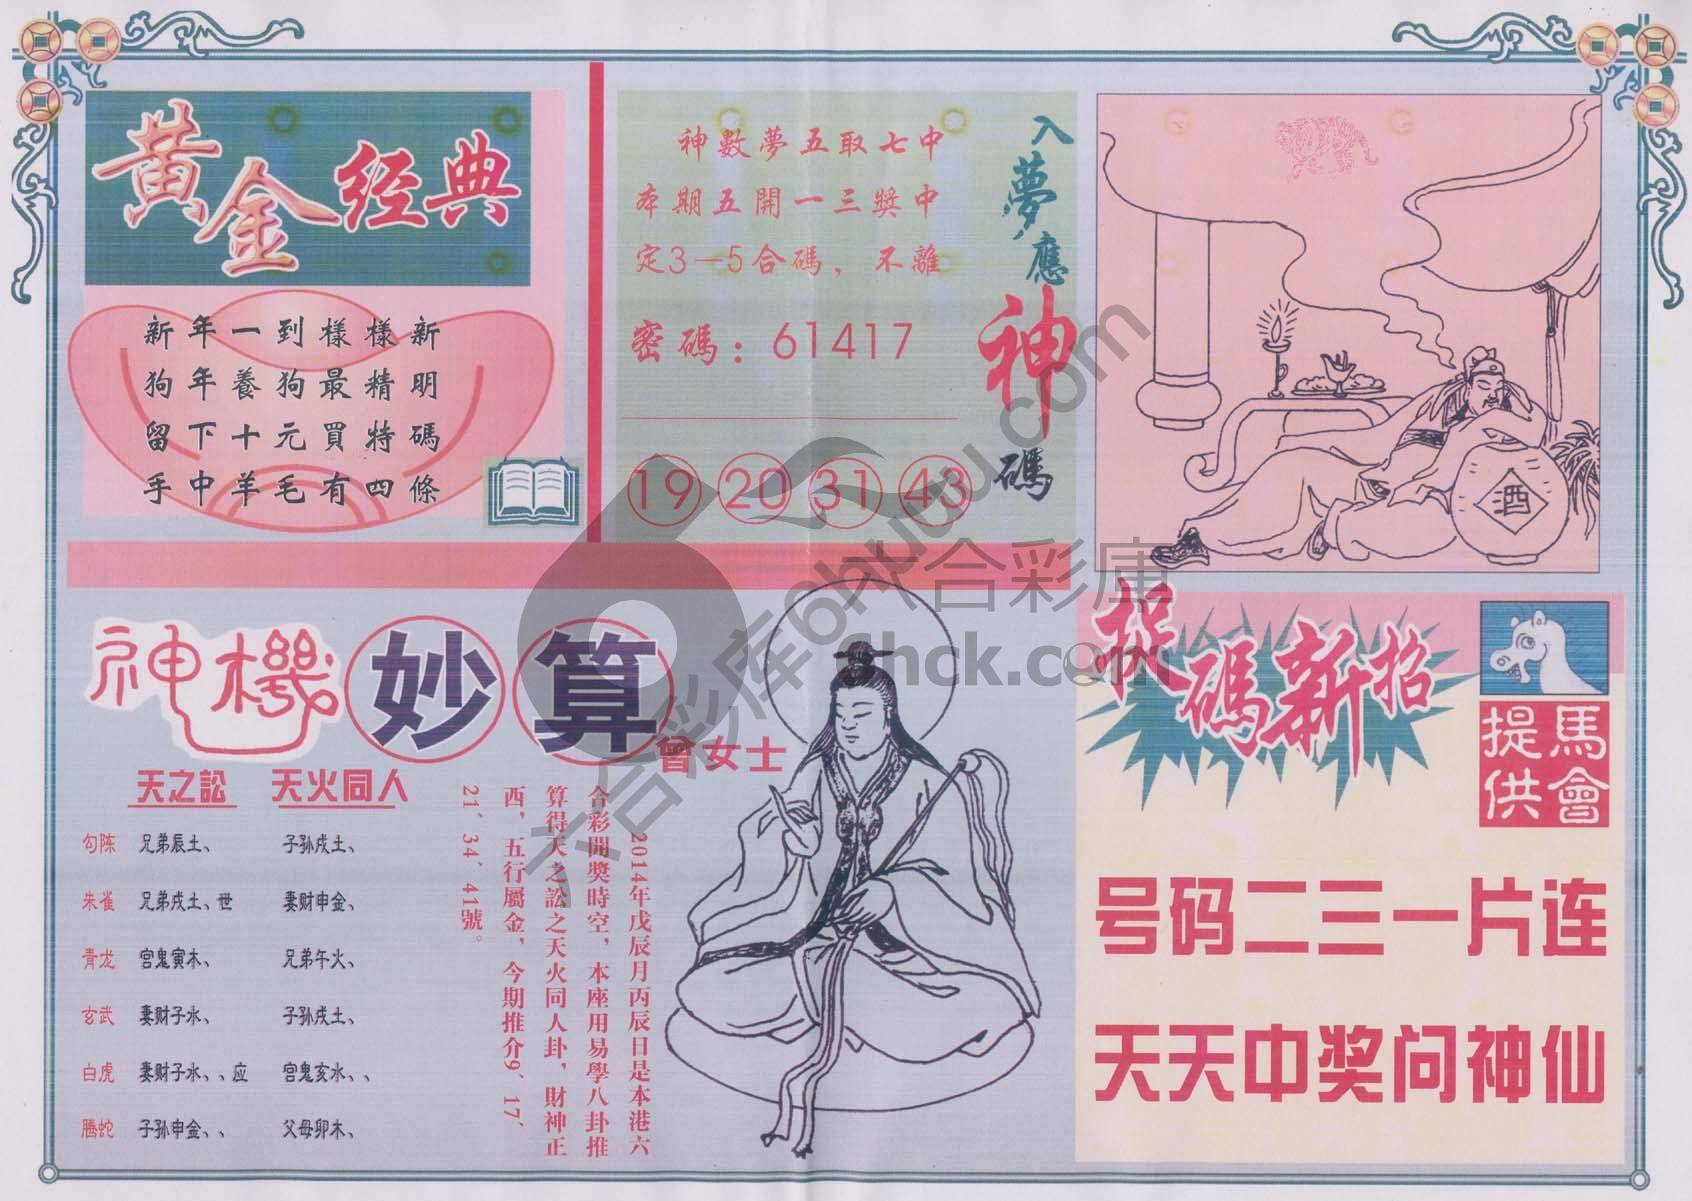 黄金经典
新年一到樣樣新
狗年養狗最精明
留下十元買特碼
手中羊毛有四條
入夢應神碼
神數夢五取七中
本期五開一三獎中
定3—5合碼，不離
密碼：61417
19 20 31 43
酒
神機妙算
曾女士
天之訟 天火同人
勾陈 兄弟辰土、 子孙戌土、
朱雀 兄弟戌土、世 妻财申金、
青龙 官鬼寅木、 兄弟午火、
玄武 妻财子水、 子孙戌土、
白虎 妻财子水、、应 官鬼亥水、、
腾蛇 子孙申金、、 父母卯木、
2014年戊辰月丙辰日是本港六
合彩開獎時空，本座用易學八卦推
算得天之訟之天火同人卦，財神正
西，五行屬金，今期推介9、17、
21、34、41號。
捉碼新招
馬會
提供
号码二三一片连
天天中奖问神仙
六合彩库6hkuku.com
六合彩庫
6hck.com